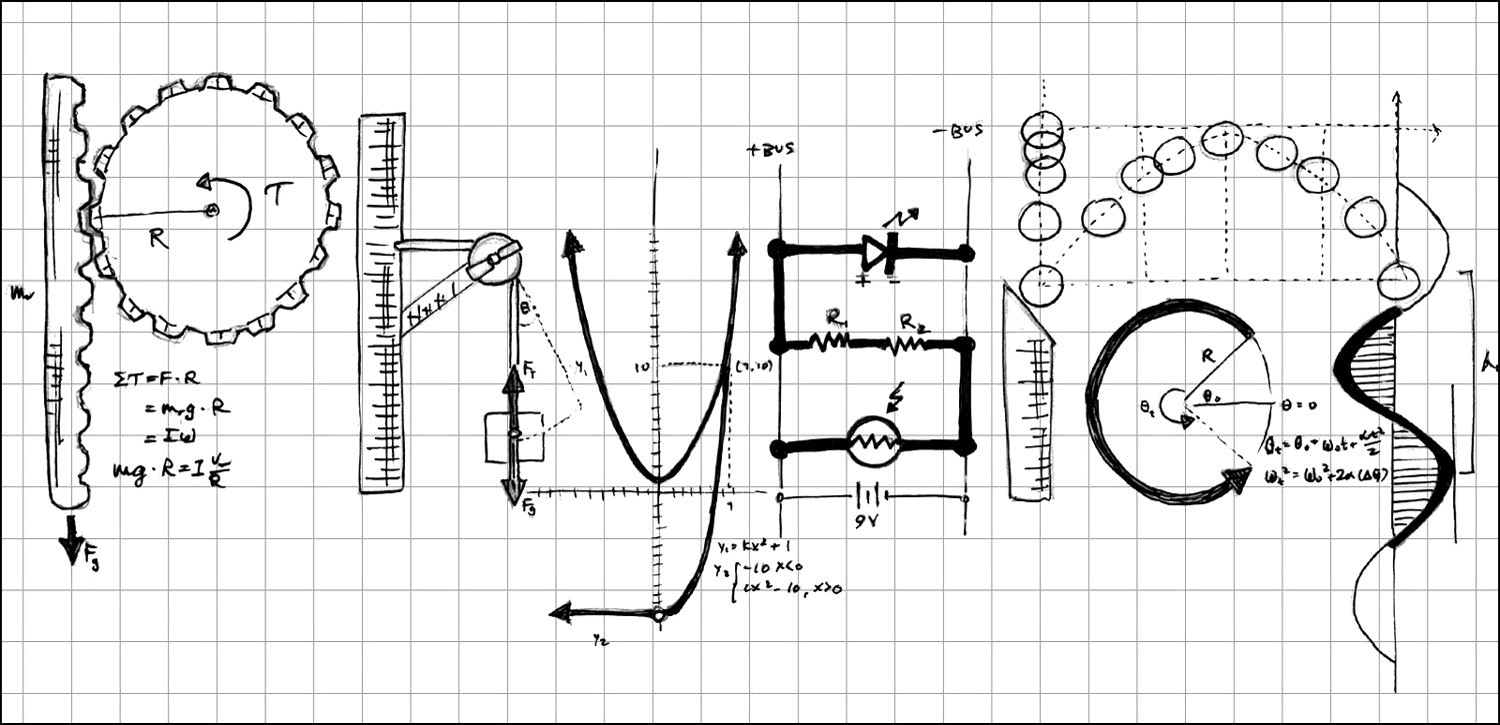 R
T
ΣT=F·R
= mᵣg·R
= Iω
mg·R=I
Fg
θ
Y₁
F_T
Fg
10
(7,10)
7
y₁=kx²+1
y₂ { -10 x<0
cx²-10, x>0
y₂
+BUS
-BUS
+ -
R₁ R₂
9V
R
θₜ θ₀ θ=0
θₜ=θ₀+ω₀t+αt²/2
ωₜ²=ω₀²+2α(Δθ)